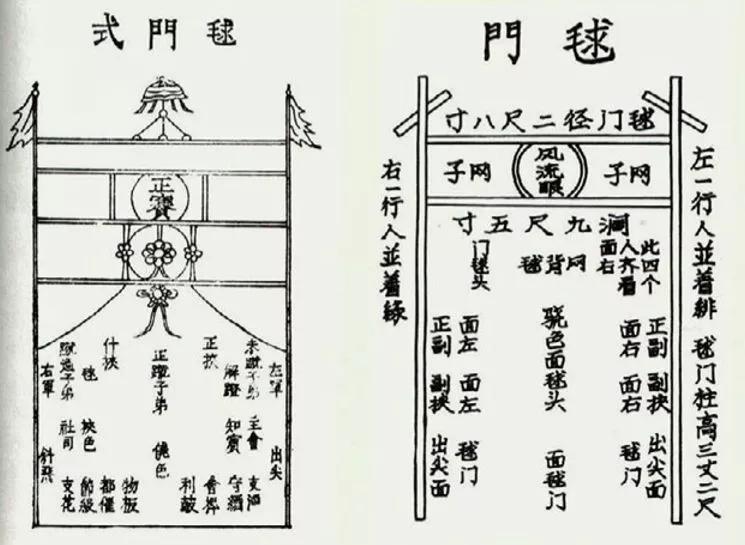 毬門式
正寶
左軍
出尖
未蹴子弟
主會
支酒
解蹬
知賓
守酒
正挾
正蹴子弟
僥色
什挾
都催
毬
挾色
節級
蹴過子弟
社司
支花
右軍
毬門
毬门径二尺八寸
网子
风流眼
网子
九尺五寸
左一行人並着緋 毬门柱高三丈二尺
此四个
人齐着
面右
网背毬
门毬头
正副
副挟
出尖面
面右
面右
毬门
骁色面毬头
面毬门
面左
面左
毬门
正副
副挟
出尖面
右一行人並着緑